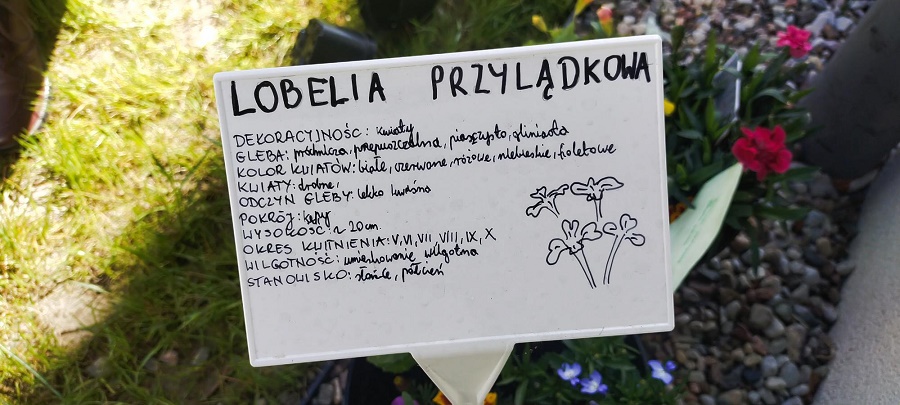 LOBELIA PRZYLĄDKOWA
DEKORACYJNOŚĆ: kwiaty
GLEBA: próchnicza, przepuszczalna, piaszczysto, gliniasta
KOLOR KWIATÓW: białe, czerwone, różowe, niebieskie, fioletowe
KWIATY: drobne,
ODCZYN GLEBY: lekko kwaśna
POKRÓJ: kępy
WYSOKOŚĆ: ~ 20cm.
OKRES KWITNIENIA: V, VI, VII, VIII, IX, X
WILGOTNOŚĆ: umiarkowanie wilgotna
STANOWISKO: słońce, półcień